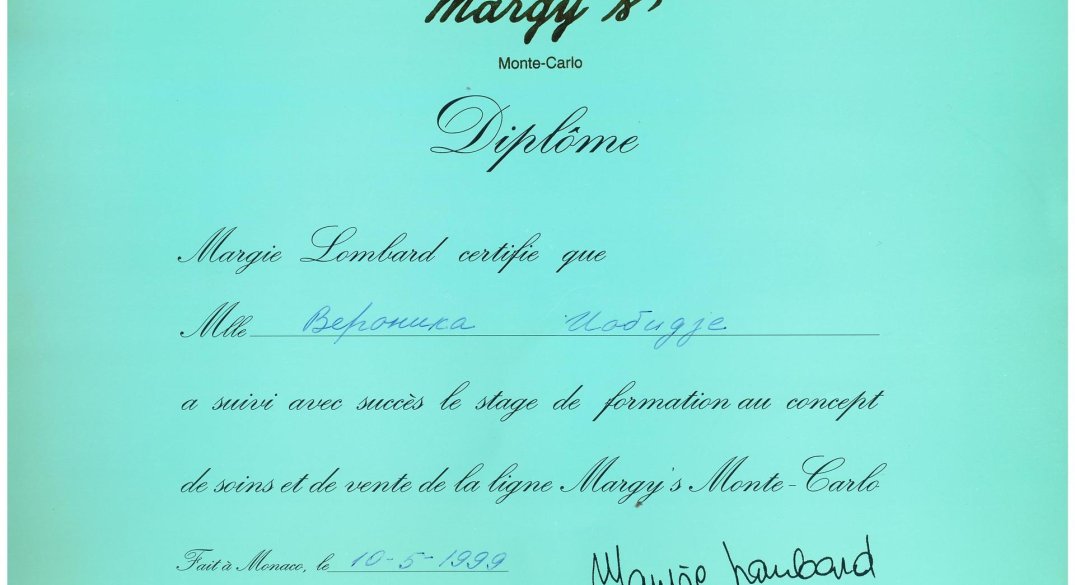 Margy's
Monte-Carlo
Diplôme
Margie Lombard certifie que
Mlle Вероника Иобидје
a suivi avec succès le stage de formation au concept
de soins et de vente de la ligne Margy's Monte-Carlo
Fait à Monaco, le 10-5-1999
Margie Lombard